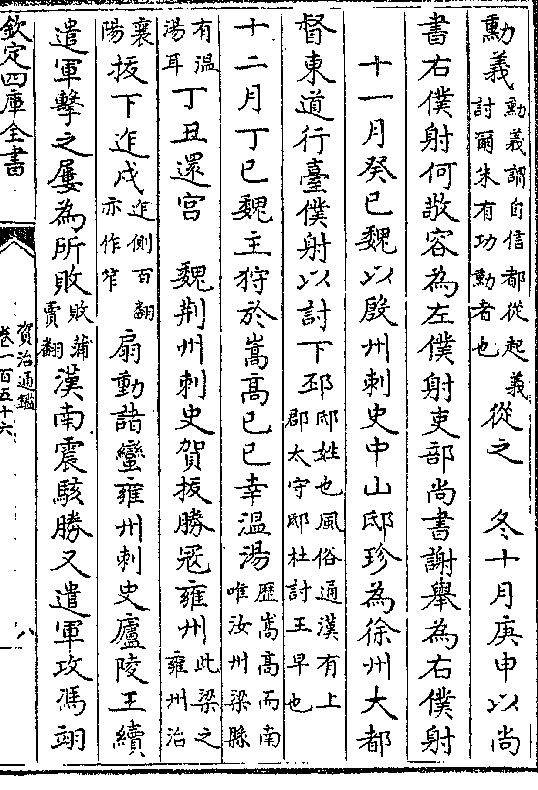 勳義勳義謂自信都從起義討爾朱有功勳者也從之 冬十月庚申以尚
書右僕射何敬容為左僕射吏部尚書謝舉為右僕射
十一月癸巳魏以殷州刺史中山邸珍為徐州大都
督東道行臺僕射以討下邳邸姓也風俗通漢有上郡太守邸杜討王早也
十二月丁巳魏主狩於嵩髙己巳幸溫湯歴嵩髙而南唯汝州梁縣
有溫湯耳丁丑還宮 魏荆州刺史賀拔勝冦雍州此梁之雍州治
襄陽拔下迮戍迮側百翻亦作笮扇動諸蠻雍州刺史廬陵王續
遣軍擊之屢為所敗敗蒲賣翻漢南震駭勝又遣軍攻馮翊
欽定四庫全書
資治通鑑
卷一百五十六
八